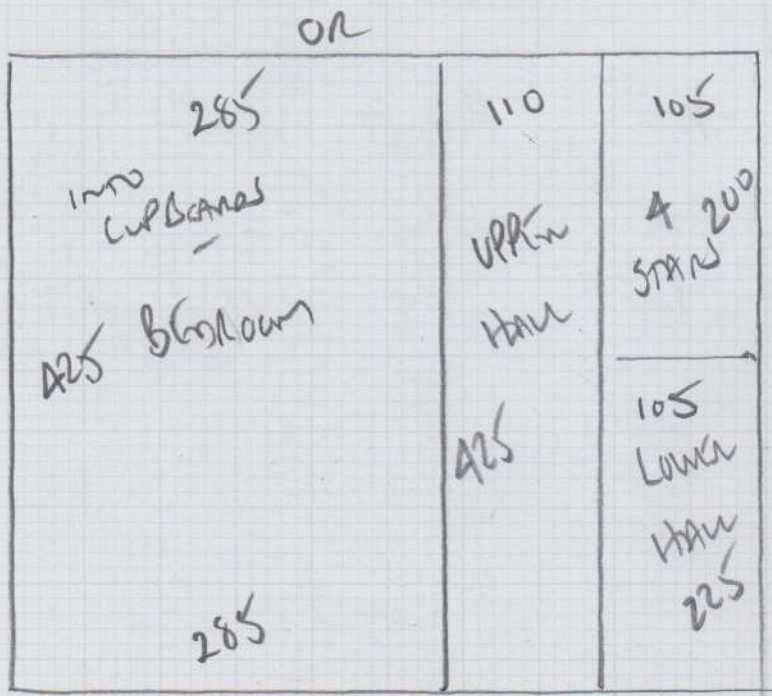 OR
285
INTO
CUPBOARDS
425 BEDROOM
285
110
UPPER
HALL
425
105
4 200
STAIRS
105
LOWER
HALL
225